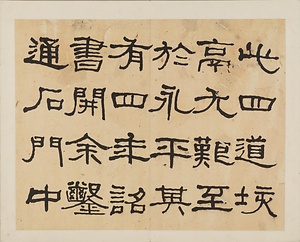 此四道垓
鬲尤難至
於永平其
有四年詔
書開余鑿
通石門中